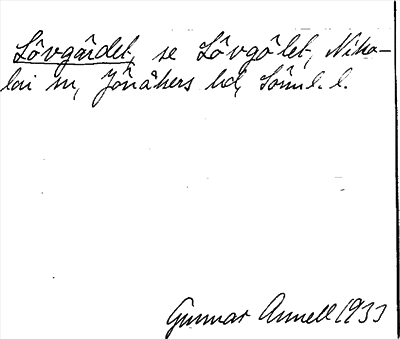 Lövgärdet, se Lövgölet, Niko-
lai sn, Jönåkers hd, Sörml. l.
Gunnar Annell 1933